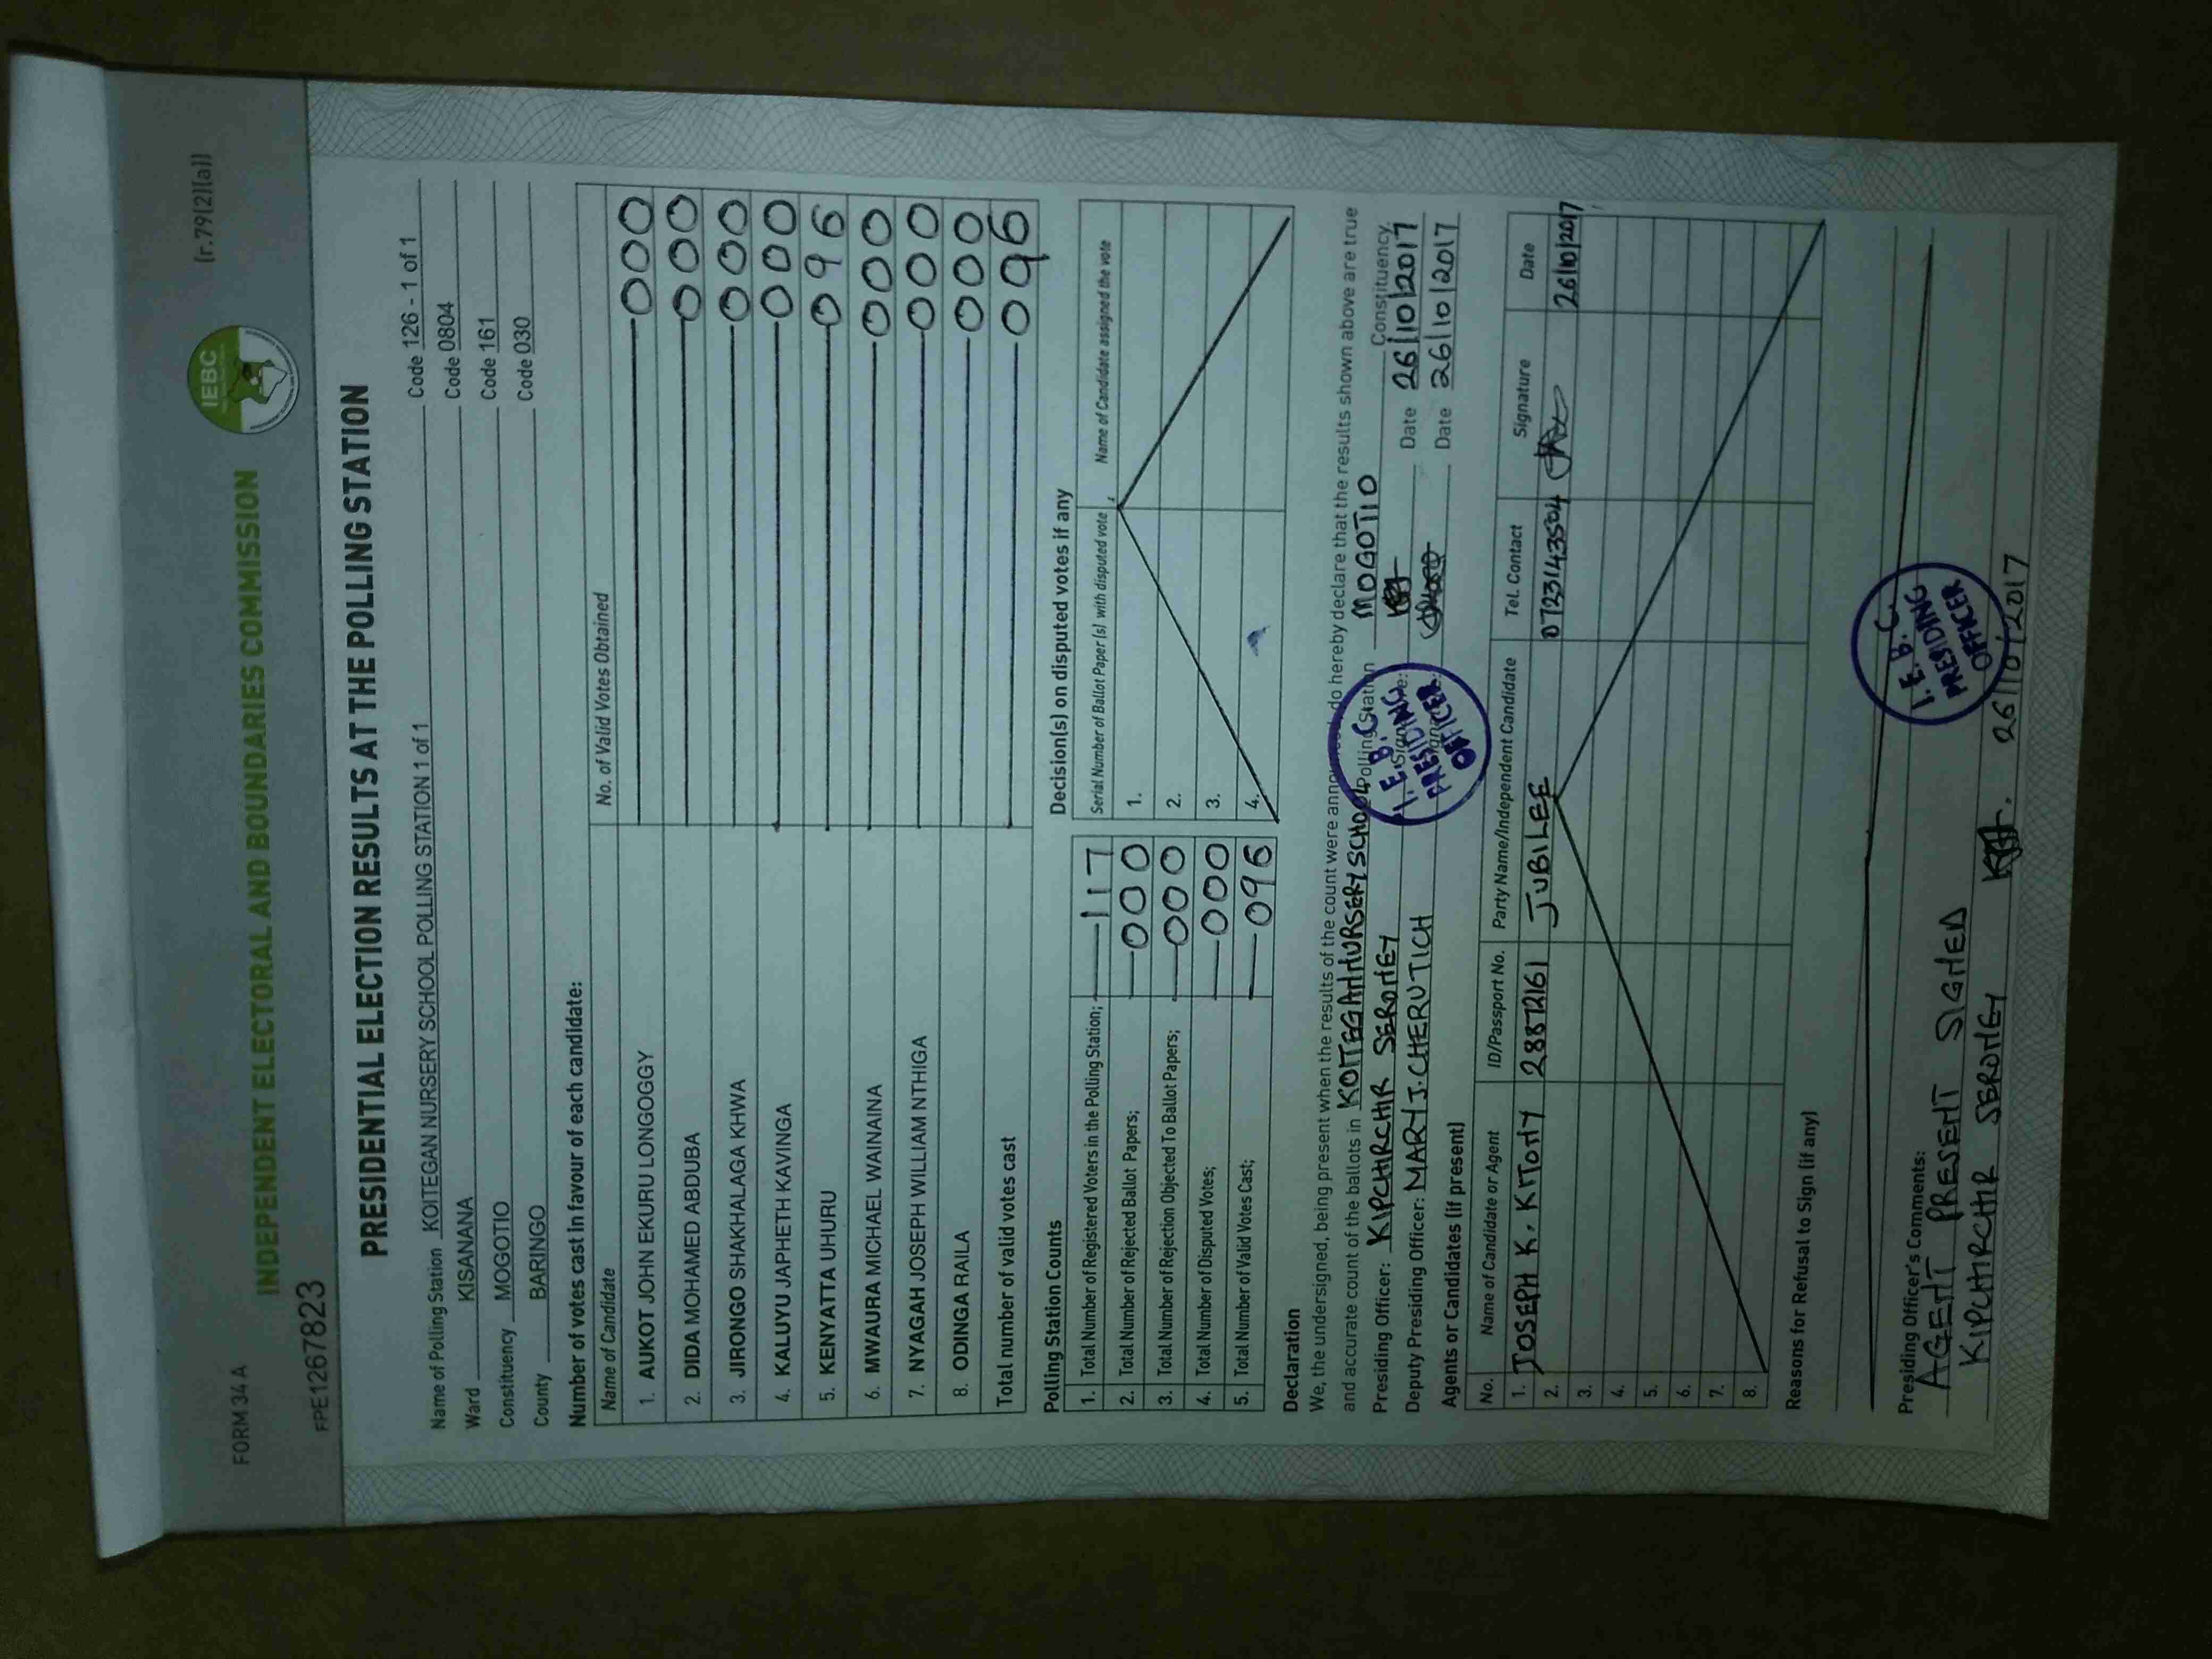 FORM 34 A
(r.79(2)(a))
IEBC
INDEPENDENT ELECTORAL AND BOUNDARIES COMMISSION
FPE1267823
PRESIDENTIAL ELECTION RESULTS AT THE POLLING STATION
Name of Polling Station KOITEGAN NURSERY SCHOOL POLLING STATION 1 of 1 Code 126 - 1 of 1
Ward KISANANA Code 0804
Constituency MOGOTIO Code 161
County BARINGO Code 030
Number of votes cast in favour of each candidate:
Name of Candidate No. of Valid Votes Obtained
1. AUKOT JOHN EKURU LONGOGGY 000
2. DIDA MOHAMED ABDUBA 000
3. JIRONGO SHAKHALAGA KHWA 000
4. KALUYU JAPHETH KAVINGA 000
5. KENYATTA UHURU 096
6. MWAURA MICHAEL WAINAINA 000
7. NYAGAH JOSEPH WILLIAM NTHIGA 000
8. ODINGA RAILA 000
Total number of valid votes cast 096
Polling Station Counts
1. Total Number of Registered Voters in the Polling Station; 117
2. Total Number of Rejected Ballot Papers; 000
3. Total Number of Rejection Objected To Ballot Papers; 000
4. Total Number of Disputed Votes; 000
5. Total Number of Valid Votes Cast; 096
Decision(s) on disputed votes if any
Serial Number of Ballot Paper (s) with disputed vote Name of Candidate assigned the vote
1.
2.
3.
4.
Declaration
We, the undersigned, being present when the results of the count were announced, do hereby declare that the results shown above are true
and accurate count of the ballots in KOITEGAN NURSERY SCHOOL Polling Station MOGOTIO Constituency.
Presiding Officer: KIPCHIRCHIR SERONEY Signature: Date 26/10/2017
Deputy Presiding Officer: MARY J. CHERUTICH Signature: Date 26/10/2017
I.E.B.C.
PRESIDING
OFFICER
Agents or Candidates (if present)
No. Name of Candidate or Agent ID/Passport No. Party Name/Independent Candidate Tel. Contact Signature Date
1. JOSEPH K. KITONY 28872161 JUBILEE 0723143504 26/10/2017
2.
3.
4.
5.
6.
7.
8.
Reasons for Refusal to Sign (if any)
Presiding Officer's Comments:
AGENT PRESENT SIGNED
KIPCHIRCHIR SERONEY 26/10/2017
I.E.B.C.
PRESIDING
OFFICER